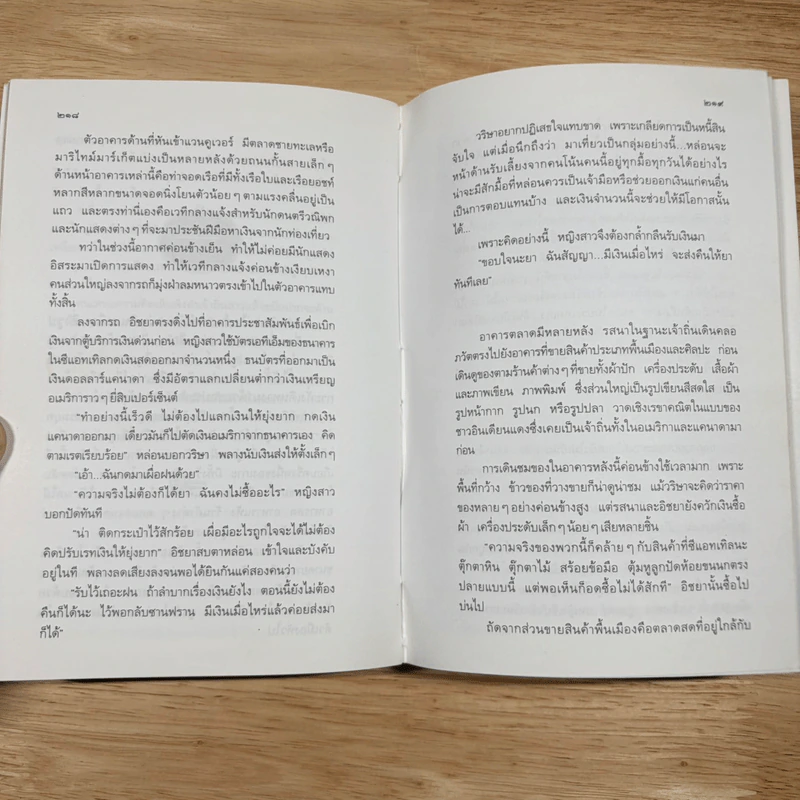 ๒๑๘
ตัวอาคารด้านที่หันเข้าแวนคูเวอร์ มีตลาดชายทะเลหรือ
มาริไทม์มาร์เก็ตแบ่งเป็นหลายหลังด้วยถนนกั้นสายเล็กๆ
ด้านหน้าอาคารเหล่านี้คือท่าจอดเรือที่มีทั้งเรือใบและเรือยอชท์
หลากสีหลากขนาดจอดนิ่งโยนตัวน้อยๆ ตามแรงคลื่นอยู่เป็น
แถว และตรงท่านี่เองคือเวทีกลางแจ้งสำหรับนักดนตรีวณิพก
และนักแสดงต่างๆ ที่จะมาประชันฝีมือหาเงินจากนักท่องเที่ยว
ทว่าในช่วงนี้อากาศค่อนข้างเย็น ทำให้ไม่ค่อยมีนักแสดง
อิสระมาเปิดการแสดง ทำให้เวทีกลางแจ้งค่อนข้างเงียบเหงา
คนส่วนใหญ่ลงจากรถก็มุ่งฝ่าลมหนาวตรงเข้าไปในตัวอาคารแทบ
ทั้งสิ้น
ลงจากรถ อิชยาตรงดิ่งไปที่อาคารประชาสัมพันธ์เพื่อเบิก
เงินจากตู้บริการเงินด่วนก่อน หญิงสาวใช้บัตรเอทีเอ็มของธนาคาร
ในซีแอทเทิลกดเงินสดออกมาจำนวนหนึ่ง ธนบัตรที่ออกมาเป็น
เงินดอลลาร์แคนาดา ซึ่งมีอัตราแลกเปลี่ยนต่ำกว่าเงินเหรียญ
อเมริการาวๆ ยี่สิบเปอร์เซ็นต์
"ทำอย่างนี้เร็วดี ไม่ต้องไปแลกเงินให้ยุ่งยาก กดเงิน
แคนาดาออกมา เดี๋ยวมันก็ไปตัดเงินอเมริกาจากธนาคารเอง คิด
ตามเรตเรียบร้อย" หล่อนบอกวริษา พลางนับเงินส่งให้ตั้งเล็กๆ
"เอ้า...ฉันกดมาเผื่อฝนด้วย"
"ความจริงไม่ต้องก็ได้ยา ฉันคงไม่ซื้ออะไร" หญิงสาว
บอกปัดทันที
"น่า ติดกระเป๋าไว้สักร้อย เผื่อมีอะไรถูกใจจะได้ไม่ต้อง
คิดปรับเรทเงินให้ยุ่งยาก" อิชยาสบตาหล่อน เข้าใจและบังคับ
อยู่ในที พลางลดเสียงลงจนพอได้ยินกันแค่สองคนว่า
"รับไว้เถอะฝน ถ้าลำบากเรื่องเงินยังไง ตอนนี้ยังไม่ต้อง
คืนก็ได้นะ ไว้พอกลับซานฟราน มีเงินเมื่อไหร่แล้วค่อยส่งมา
ก็ได้"
๒๑๙
วริษาอยากปฏิเสธใจแทบขาด เพราะเกลียดการเป็นหนี้สิน
จับใจ แต่เมื่อนึกถึงว่า มาเที่ยวเป็นกลุ่มอย่างนี้...หล่อนจะ
หน้าด้านรับเลี้ยงจากคนโน้นคนนี้อยู่ทุกมื้อทุกวันได้อย่างไร
น่าจะมีสักมื้อที่หล่อนควรเป็นเจ้ามือหรือช่วยออกเงินแก่คนอื่น
เป็นการตอบแทนบ้าง และเงินจำนวนนี้จะช่วยให้มีโอกาสนั้น
ได้...
เพราะคิดอย่างนี้ หญิงสาวจึงต้องกล้ำกลืนรับเงินมา
"ขอบใจนะยา ฉันสัญญา...มีเงินเมื่อไหร่ จะส่งคืนให้ยา
ทันทีเลย"
อาคารตลาดมีหลายหลัง รสนาในฐานะเจ้าถิ่นเดินคลอ
ภวัตตรงไปยังอาคารที่ขายสินค้าประเภทพื้นเมืองและศิลปะ ก่อน
เดินดูของตามร้านค้าต่างๆ ที่ขายทั้งผ้าปัก เครื่องประดับ เสื้อผ้า
และภาพเขียน ภาพพิมพ์ ซึ่งส่วนใหญ่เป็นรูปเขียนสีสดใส เป็น
รูปหน้ากาก รูปนก หรือรูปปลา วาดเชิงเรขาคณิตในแบบของ
ชาวอินเดียนแดงซึ่งเคยเป็นเจ้าถิ่นทั้งในอเมริกาและแคนาดามา
ก่อน
การเดินชมของในอาคารหลังนี้ค่อนข้างใช้เวลามาก เพราะ
พื้นที่กว้าง ข้าวของที่วางขายก็น่าดูน่าชม แม้วริษาจะคิดว่าราคา
ของหลายๆ อย่างค่อนข้างสูง แต่รสนาและอิชยายังควักเงินซื้อ
ผ้า เครื่องประดับเล็กๆ น้อยๆ เสียหลายชิ้น
"ความจริงของพวกนี้ก็คล้ายๆ กับสินค้าที่ซีแอทเทิลนะ
ตุ๊กตาหิน ตุ๊กตาไม้ สร้อยข้อมือ ตุ้มหูลูกปัดห้อยขนนกตรง
ปลายแบบนี้ แต่พอเห็นก็อดซื้อไม่ได้สักที" อิชยานั้นซื้อไป
บ่นไป
ถัดจากส่วนขายสินค้าพื้นเมืองคือตลาดสดที่อยู่ใกล้กับ